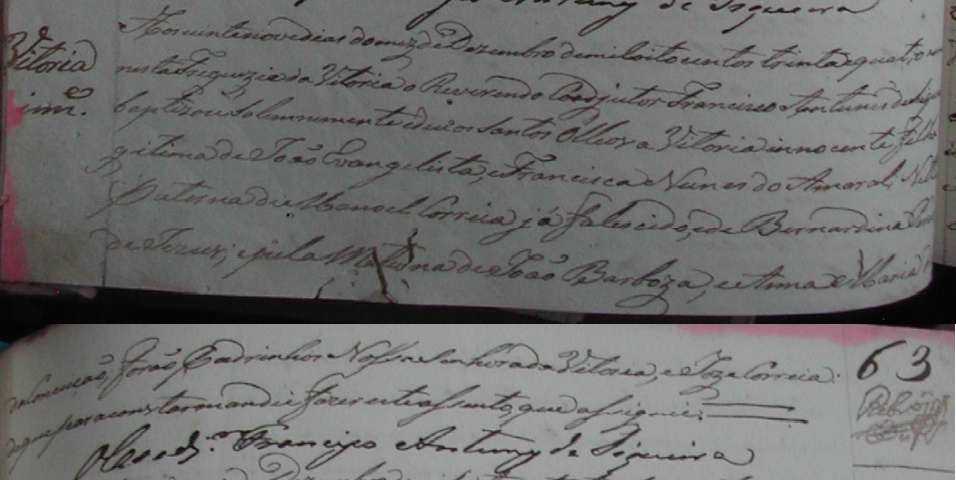 Antuny de Siqueira
Vitoria
inn.e
Aos vinte nove dias do mez de Dezembro de mil oito centos trinta e quatro
nesta Freguezia da Vitoria o Reverendo Coadjutor Francisco Antunes de
baptizou solemnemente e deu os Santos Olleos a Vitoria innocente filha
gitima de João Evangelista, e Francisca Nunes do Amaral; Net
Paterna de Manoel Correia já falescido, e de Bernardina
de Jezus; e pela Materna de João Barboza, e Anna Maria
da Conceição, forão Padrinhos Nossa Senhora da Vitoria, e Joze Correia:
do que para constar mandei fazer este assento, que assignei:
63
O Coadj.or Francisco Antuny de Siqueira